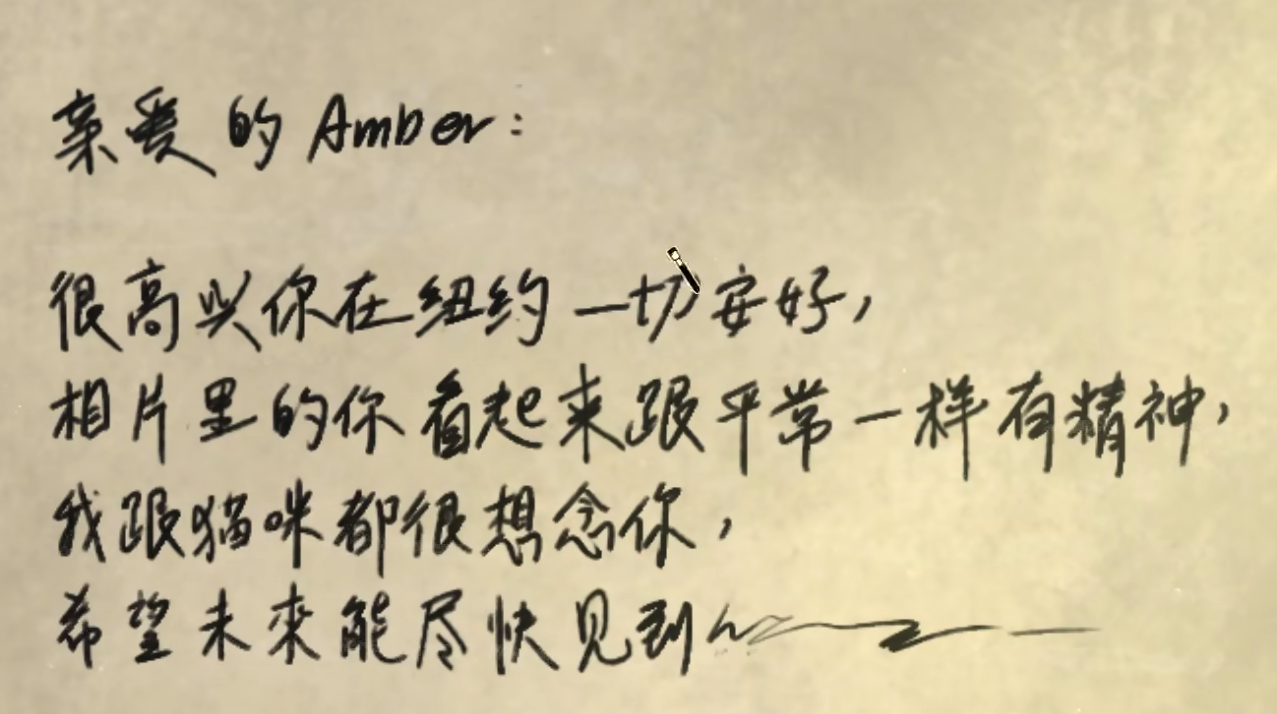 亲爱的 Amber：
很高兴你在纽约一切安好，
相片里的你看起来跟平常一样有精神，
我跟猫咪都很想念你，
希望未来能尽快见到